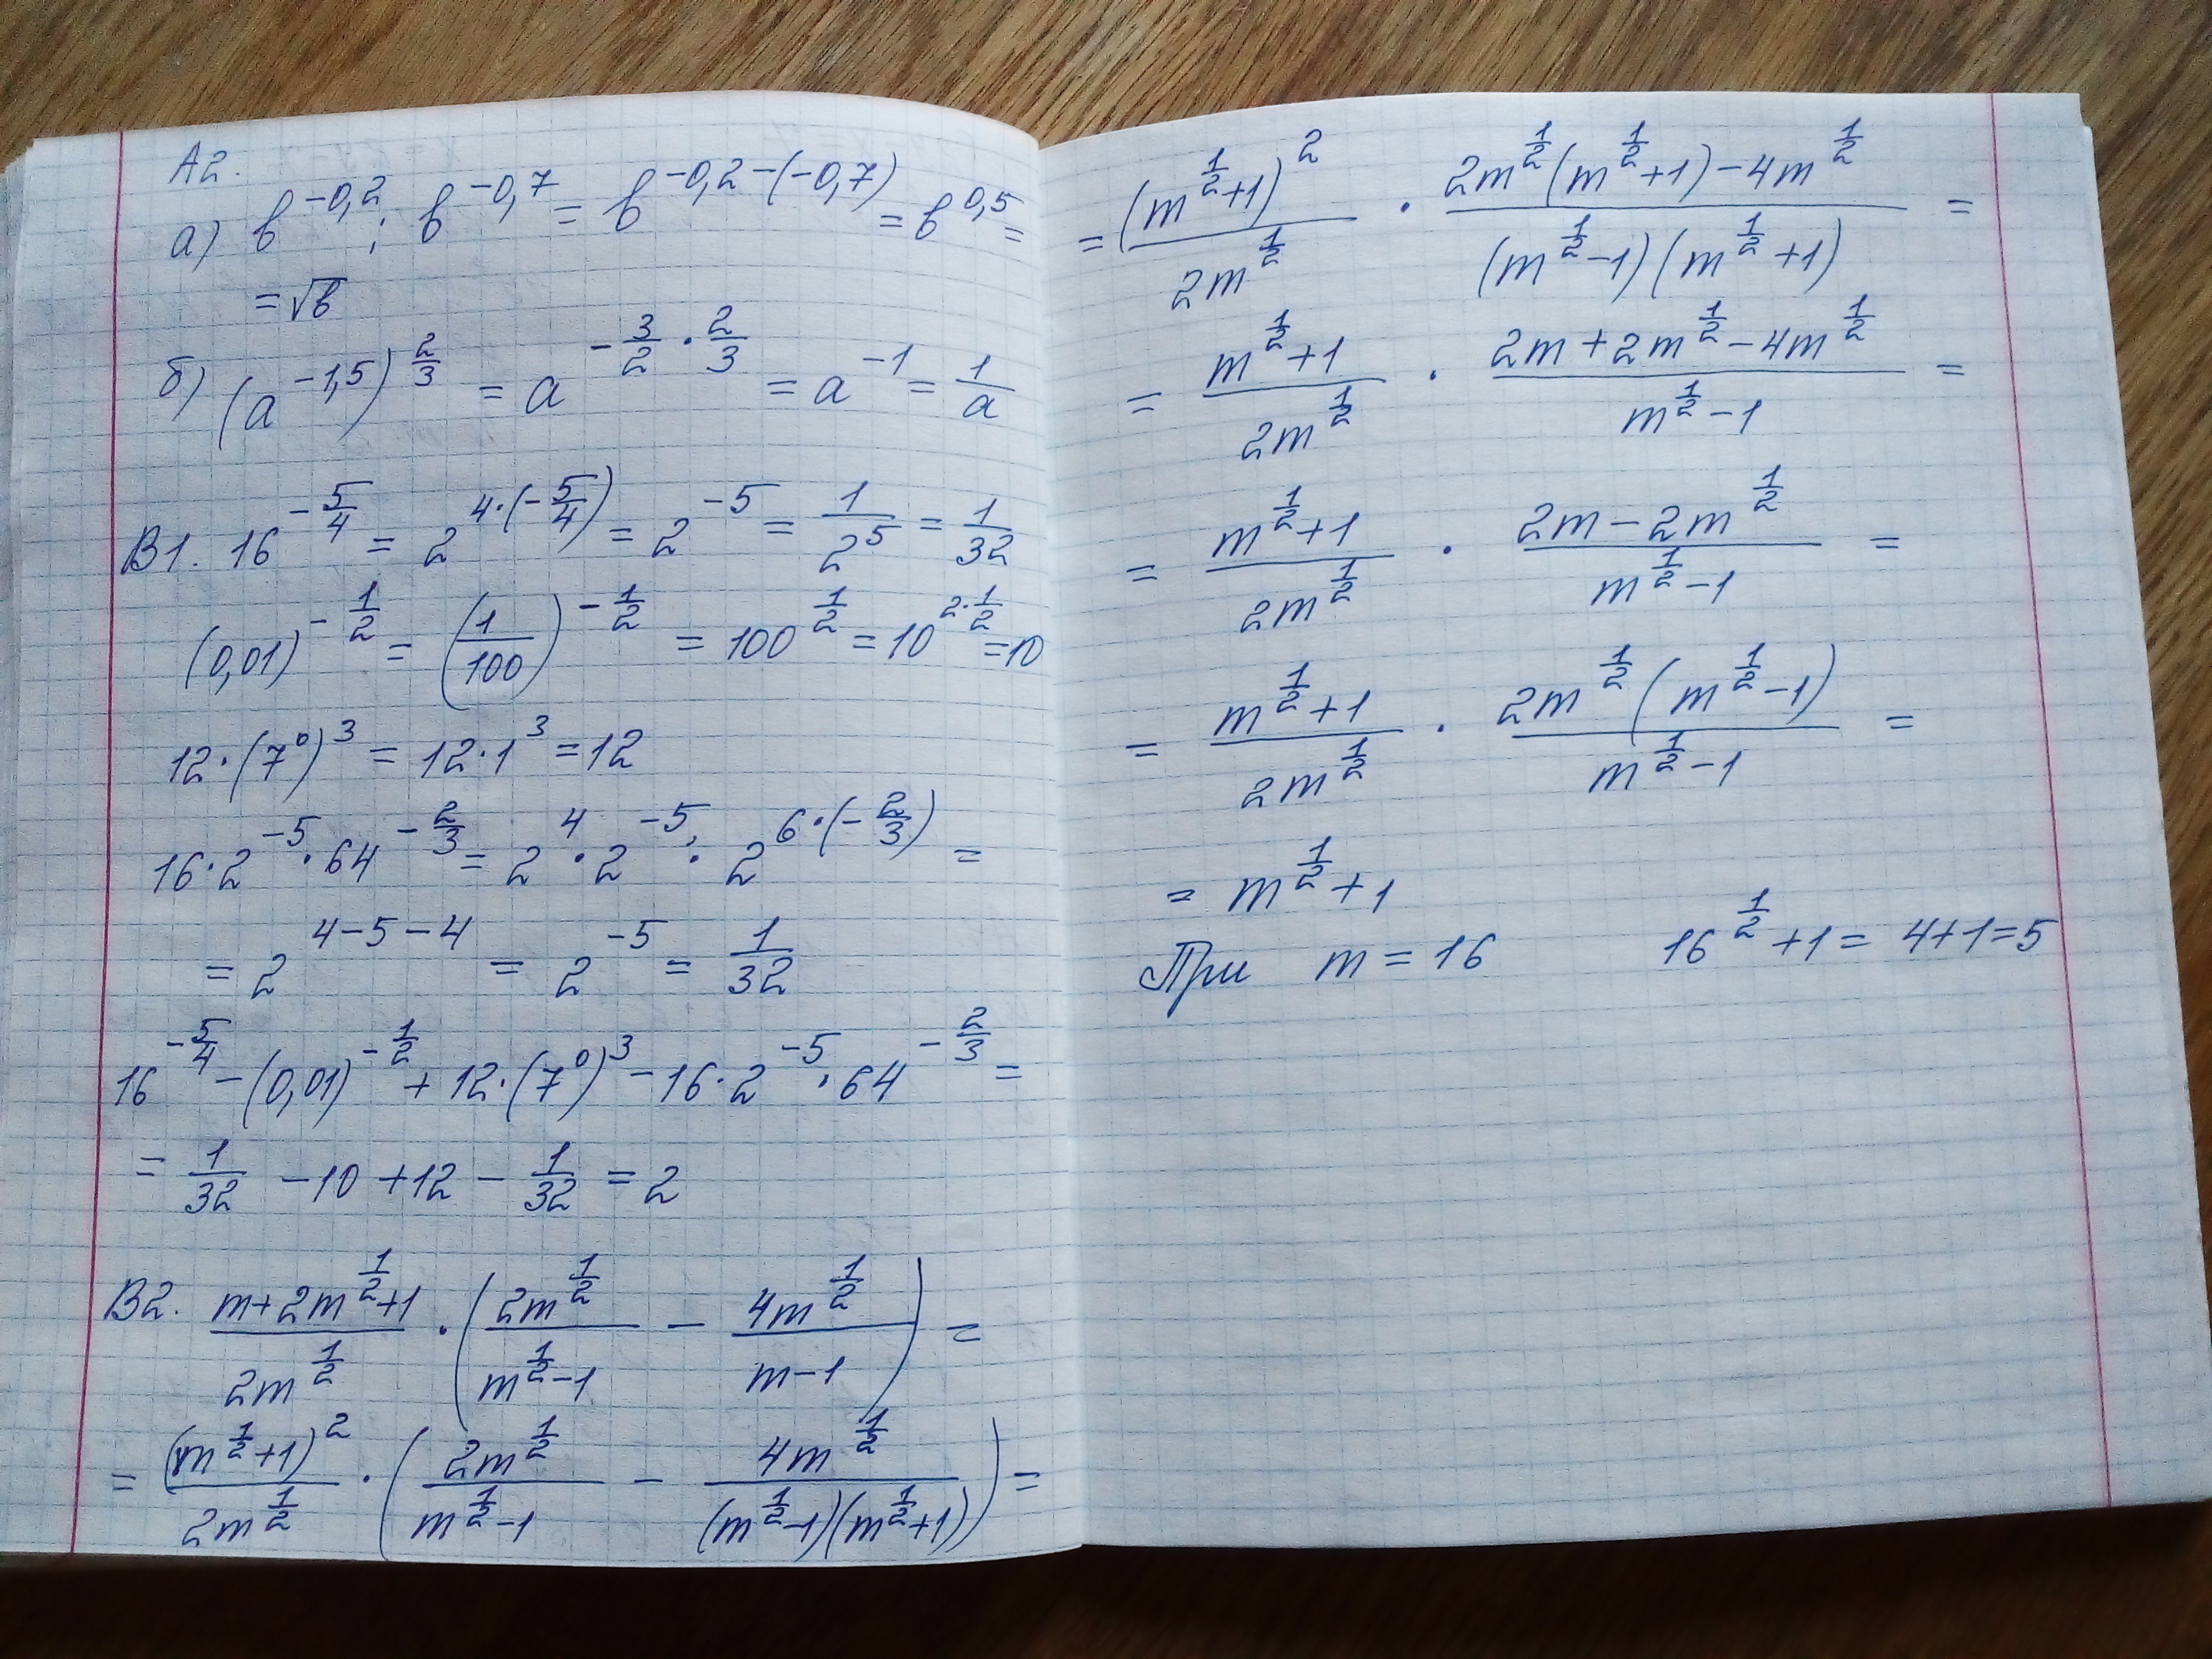 А2.
а) b^{-0,2} : b^{-0,7} = b^{-0,2-(-0,7)} = b^{0,5} =
= √b
б) (a^{-1,5})^{2/3} = a^{-3/2 · 2/3} = a^{-1} = 1/a
В1. 16^{-5/4} = 2^{4·(-5/4)} = 2^{-5} = 1/2^5 = 1/32
(0,01)^{-1/2} = (1/100)^{-1/2} = 100^{1/2} = 10^{2·1/2} = 10
12·(7^0)^3 = 12·1^3 = 12
16·2^{-5}·64^{-2/3} = 2^4·2^{-5}·2^{6·(-2/3)} =
= 2^{4-5-4} = 2^{-5} = 1/32
16^{-5/4} - (0,01)^{-1/2} + 12·(7^0)^3 - 16·2^{-5}·64^{-2/3} =
= 1/32 - 10 + 12 - 1/32 = 2
В2. (m+2m^{1/2}+1)/(2m^{1/2}) · (2m^{1/2}/(m^{1/2}-1) - 4m^{1/2}/(m-1)) =
= (m^{1/2}+1)^2/(2m^{1/2}) · (2m^{1/2}/(m^{1/2}-1) - 4m^{1/2}/((m^{1/2}-1)(m^{1/2}+1))) =
= (m^{1/2}+1)^2/(2m^{1/2}) · (2m^{1/2}(m^{1/2}+1)-4m^{1/2})/((m^{1/2}-1)(m^{1/2}+1)) =
= (m^{1/2}+1)/(2m^{1/2}) · (2m+2m^{1/2}-4m^{1/2})/(m^{1/2}-1) =
= (m^{1/2}+1)/(2m^{1/2}) · (2m-2m^{1/2})/(m^{1/2}-1) =
= (m^{1/2}+1)/(2m^{1/2}) · (2m^{1/2}(m^{1/2}-1))/(m^{1/2}-1) =
= m^{1/2}+1
При m = 16 16^{1/2}+1 = 4+1=5